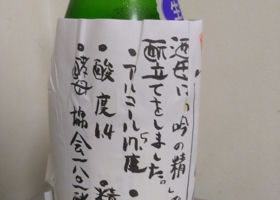 酒母に「吟の精」を
酛立てをしました。
・アルコール17.5度
・精
・酸度1.4
・酵母 協会一八〇一